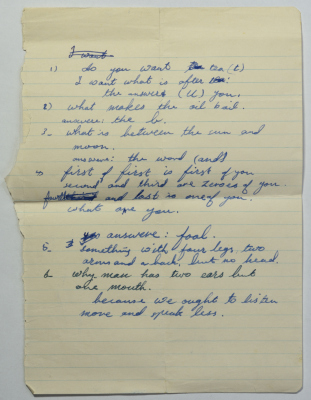 I want
1) do you want tea (t)
I want what is after
the answer (U) you.
2) what makes the oil boil.
answer: the b.
3. what is between the sun and
moon.
answer: the word (and)
first of first is first of you
second and third are zeroes of you.
and last is one of you.
what are you.
answer: fool.
5. something with four legs, two
arms and a back, but no head.
6. why man has two ears but
one mouth.
because we ought to listen
more and speak less.